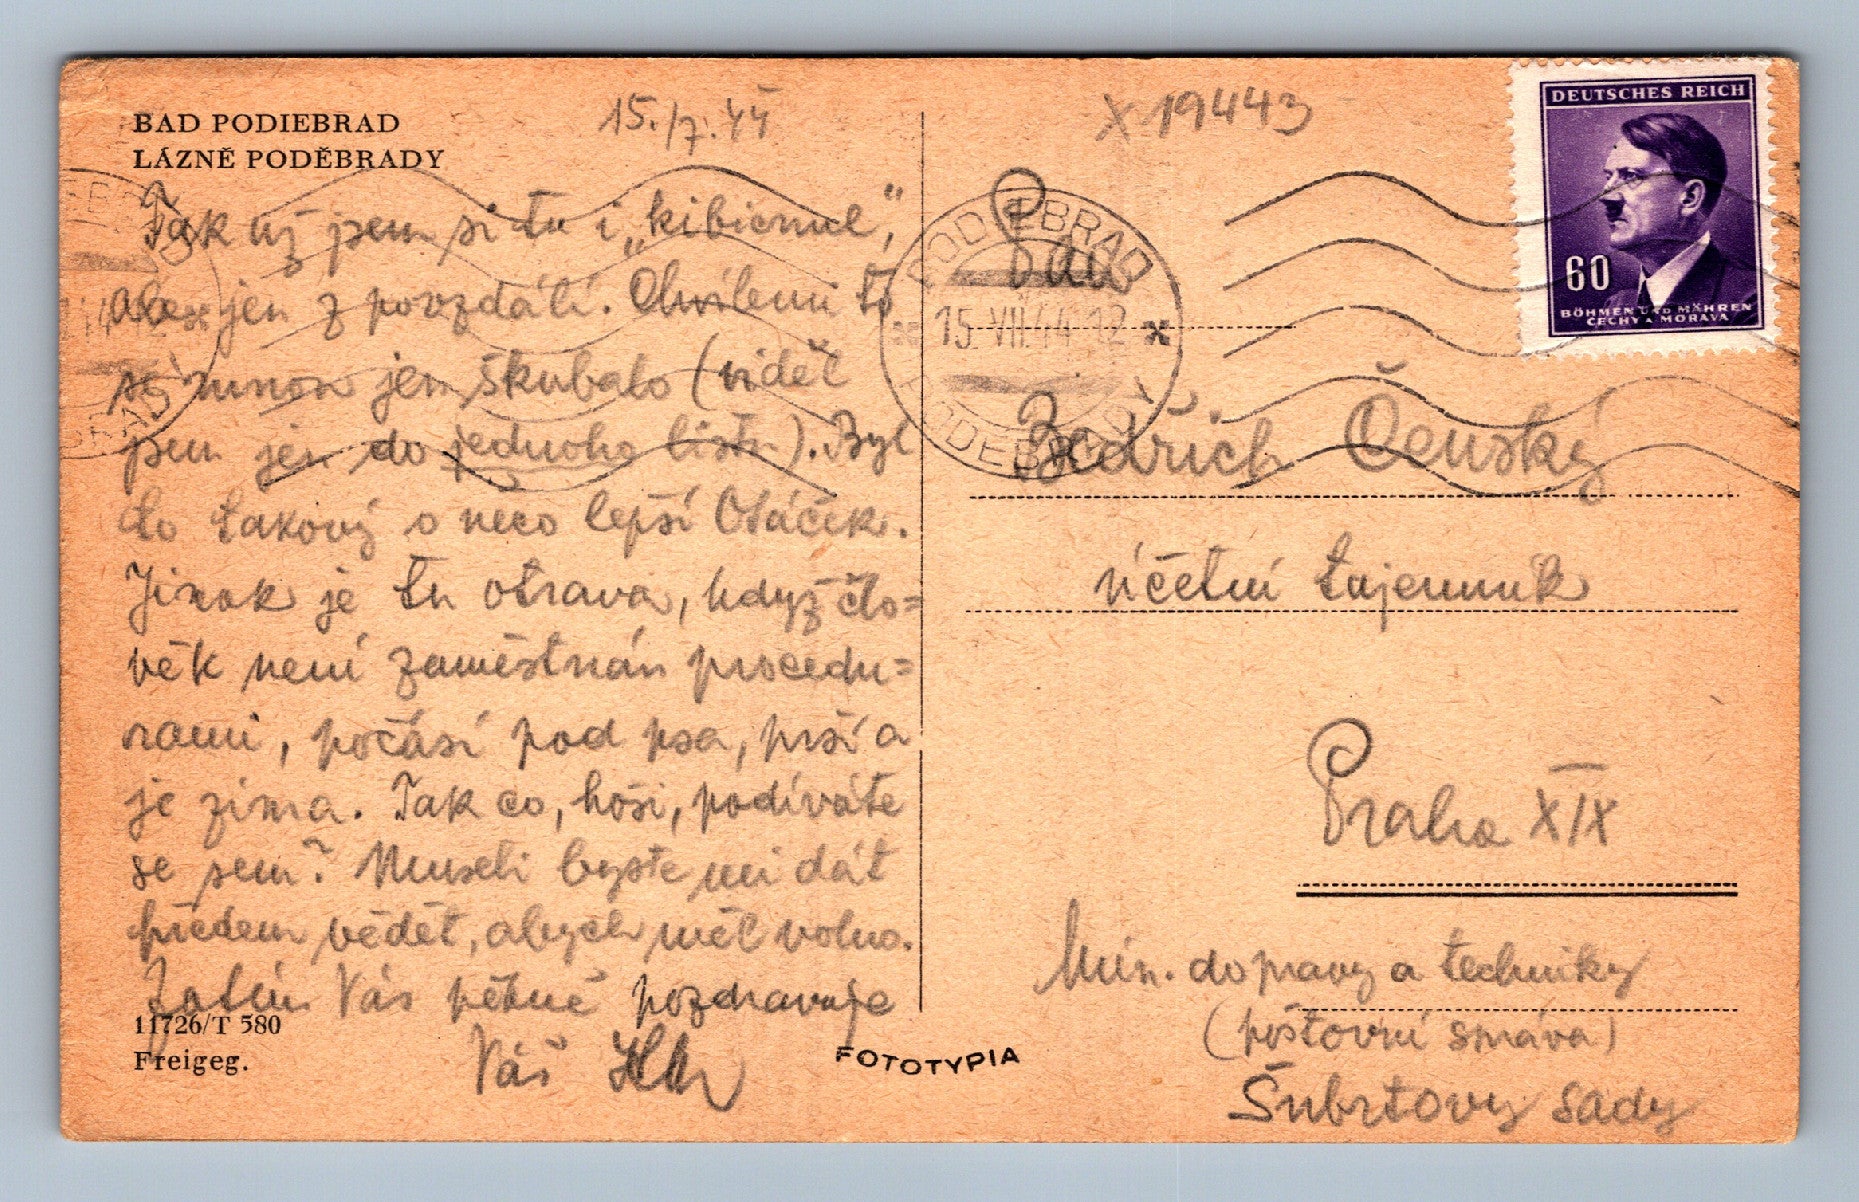 BAD PODIEBRAD
LÁZNĚ PODĚBRADY
15./7.44
X 19443
DEUTSCHES REICH
60
BÖHMEN UND MÄHREN
ČECHY A MORAVA
PODIEBRAD
15.VII.44 12
PODĚBRADY
Tak už jsem si tu i „kibicoval",
ale jen z povzdálí. Chvílemi to
se mnou jen škubalo (viděl
jsem jen do jednoho listu). Byl
to takový o něco lepší Otáček.
Jinak je tu otrava, když člo=
věk není zaměstnán procedu=
rami, počasí pod psa, prší a
je zima. Tak co, hoši, podíváte
se sem? Museli byste mi dát
předem vědět, abych měl volno.
Zatím Vás pěkně pozdravuje
Váš
11726/T 580
Freigeg.
FOTOTYPIA
Pan
Bedřich Čenský
účetní tajemník
Praha XIX
Min. dopravy a techniky
(poštovní správa)
Šubrtovy sady